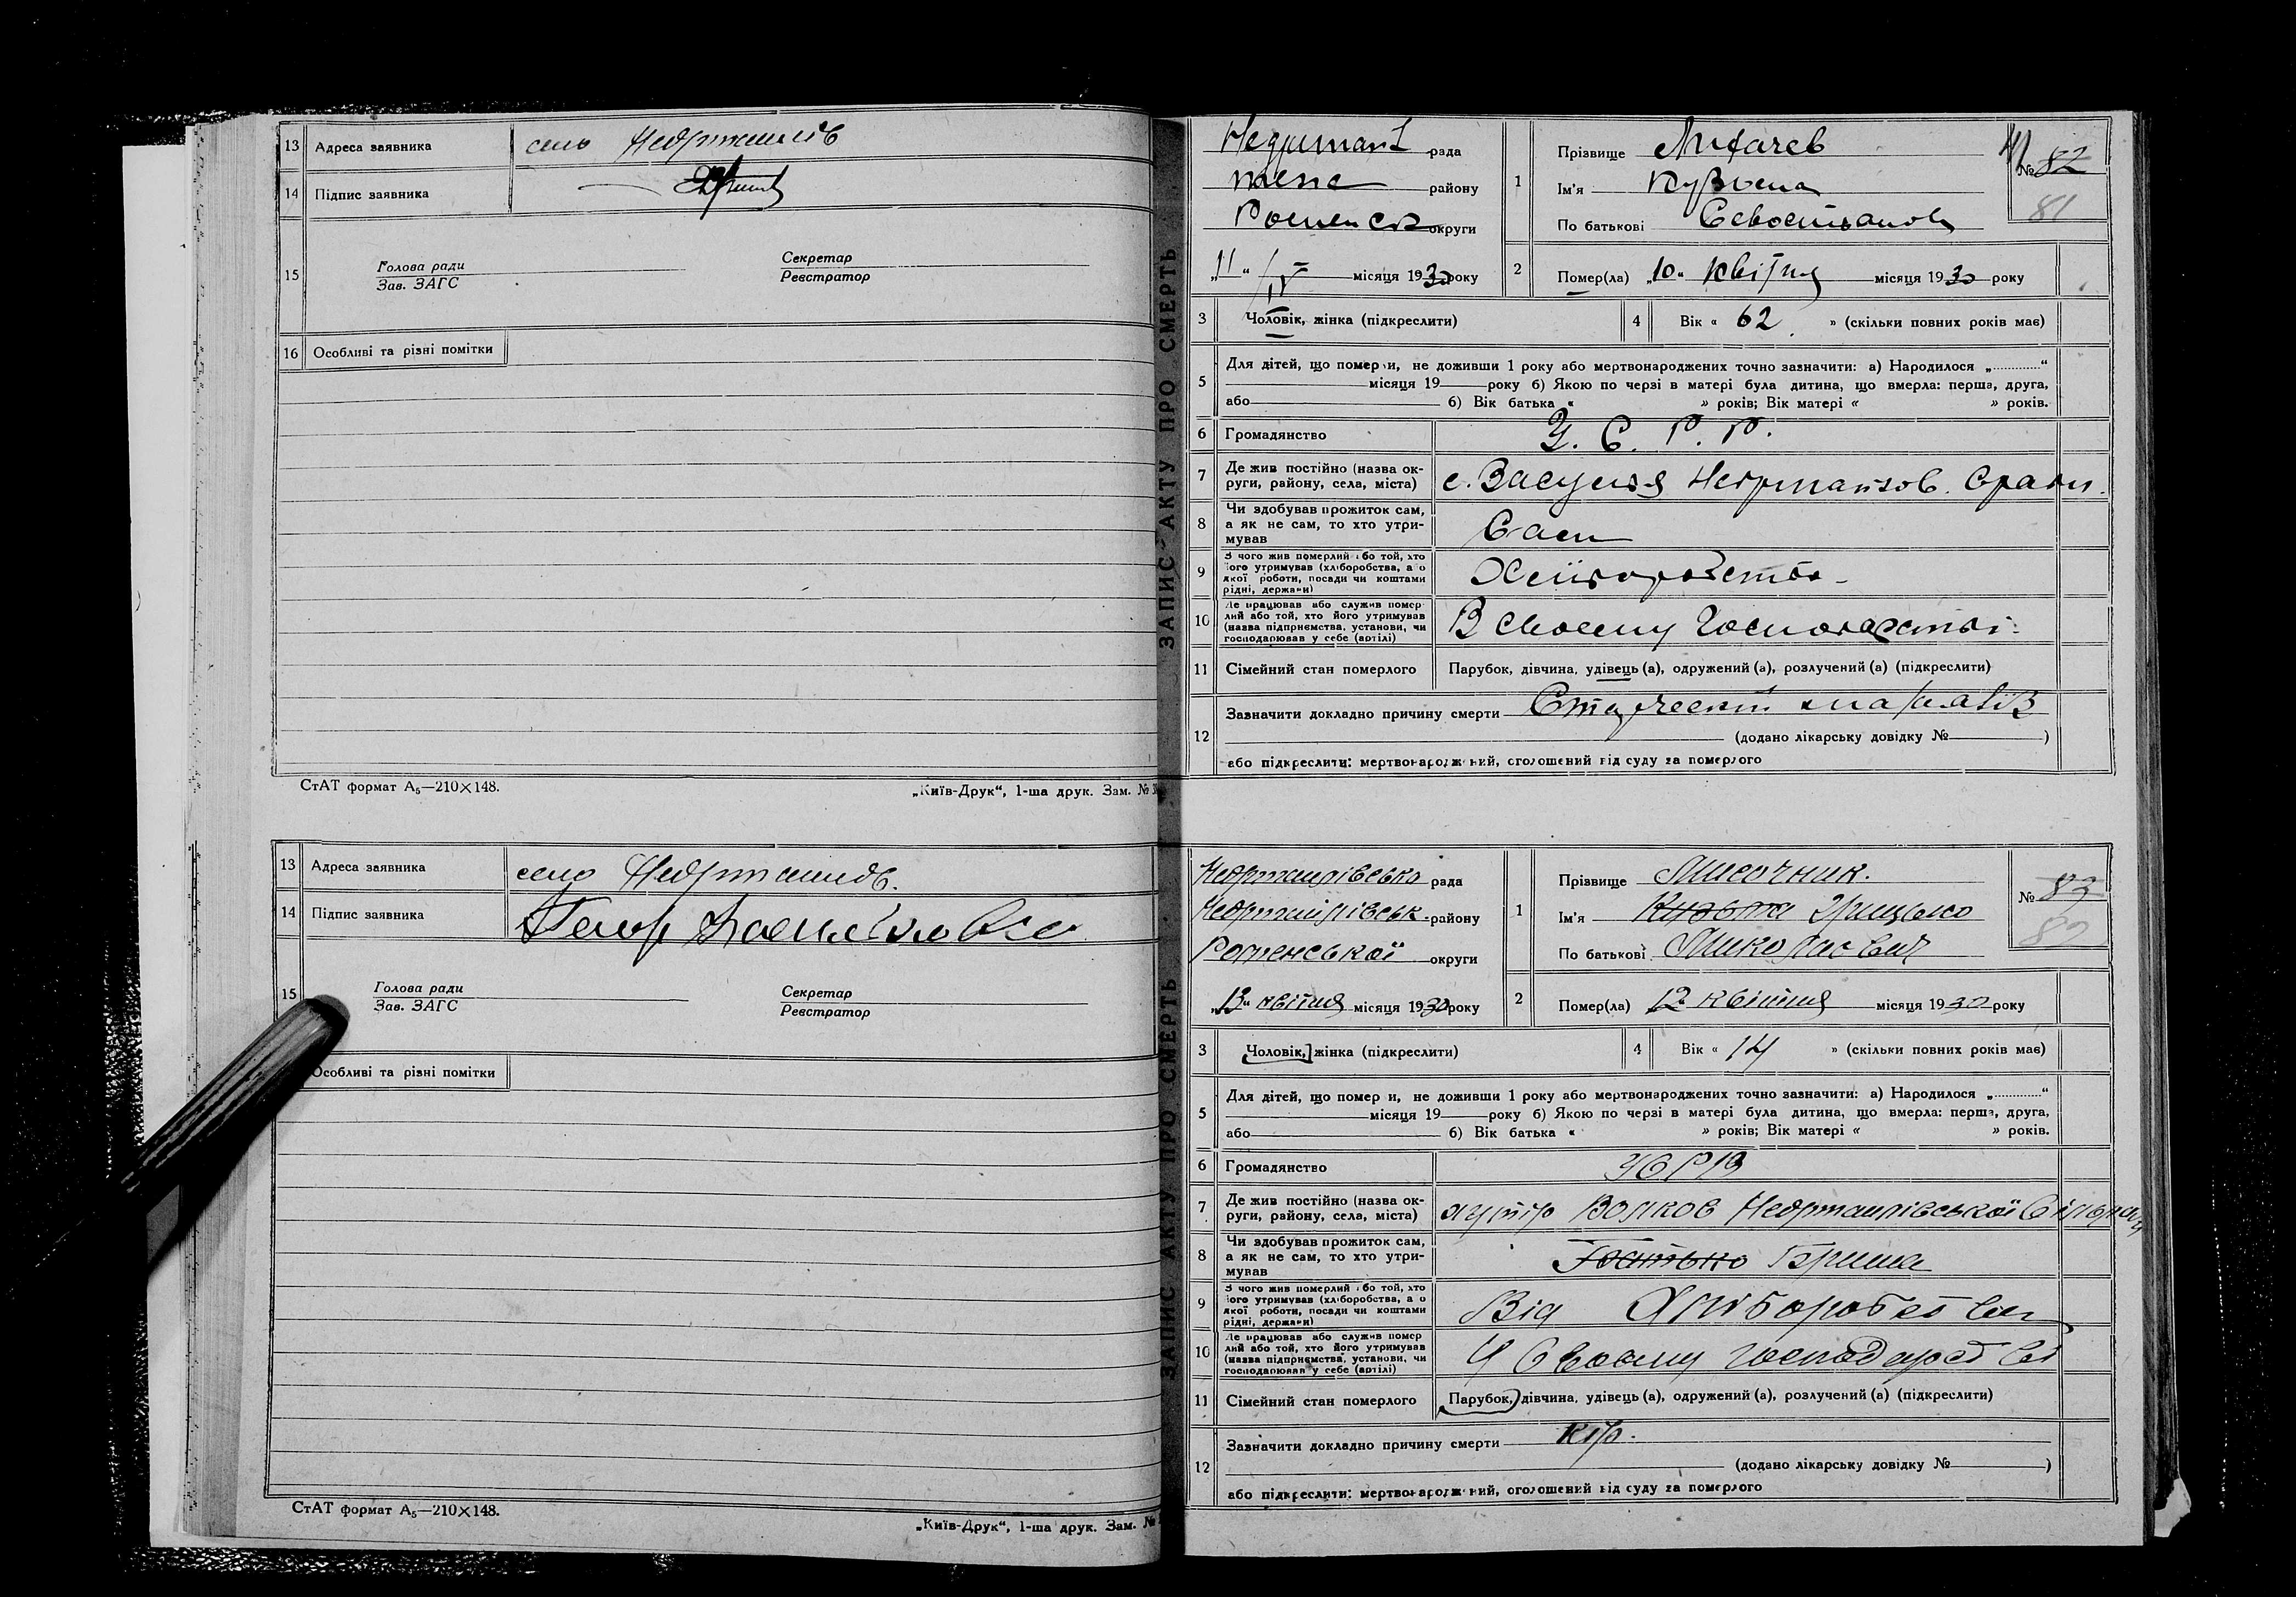 13 Адреса заявника село Недригайлів
14 Підпис заявника
15 Голова ради Секретар
Зав. ЗАГС Реєстратор
16 Особливі та різні помітки
СтАТ формат А₅—210×148. „Київ-Друк“, 1-ша друк. Зам. №
13 Адреса заявника село Недригайлів.
14 Підпис заявника
15 Голова ради Секретар
Зав. ЗАГС Реєстратор
Особливі та різні помітки
СтАТ формат А₅—210×148.
„Київ-Друк“, 1-ша друк. Зам. №
ЗАПИС АКТУ ПРО СМЕРТЬ
рада
району
Роменськ округи
„11“ IV місяця 1930 року
1 Прізвище Лихачев
Ім'я Кузьма
По батькові Севостьянов
№ 82
81
2 Помер(ла) „10“ Квітня місяця 1930 року
3 Чоловік, жінка (підкреслити)
4 Вік « 62 » (скільки повних років має)
5 Для дітей, що померли, не доживши 1 року або мертвонароджених точно зазначити: а) Народилося „............“
місяця 19 року б) Якою по черзі в матері була дитина, що вмерла: перша, друга,
або б) Вік батька « » років; Вік матері « » років.
6 Громадянство У. С. Р. Р.
7 Де жив постійно (назва ок-
руги, району, села, міста) с. Засулля
8 Чи здобував прожиток сам,
а як не сам, то хто утри-
мував Сам
9 З чого жив померлий або той, хто
його утримував (хліборобства, або
якої роботи, посади чи коштами
рідні, держави) Хліборобство
10 Де працював або служив помер
лий або той, хто його утримував
(назва підприємства, установи, чи
господарював у себе (артілі) В своему Господарстві
11 Сімейний стан померлого Парубок, дівчина, удівець (а), одружений (а), розлучений (а) (підкреслити)
12 Зазначити докладно причину смерти
(додано лікарську довідку № )
або підкреслити: мертвонароджений, оголошений від суду за померлого
ЗАПИС АКТУ ПРО СМЕРТЬ
Недригайлівська рада
Недригайлівськ. району
Роменської округи
„13“ квітня місяця 1930 року
1 Прізвище Лисочник.
Ім'я Кузьма Грицько
По батькові Миколаєвич
№ 83
82
2 Помер(ла) 12 квітня місяця 1930 року
3 Чоловік, жінка (підкреслити)
4 Вік « 14 » (скільки повних років має)
5 Для дітей, що померли, не доживши 1 року або мертвонароджених точно зазначити: а) Народилося „............“
місяця 19 року б) Якою по черзі в матері була дитина, що вмерла: перша, друга,
або б) Вік батька « » років; Вік матері « » років.
6 Громадянство УСРР
7 Де жив постійно (назва ок-
руги, району, села, міста) хутір Волков Недригайлівської Сільради
8 Чи здобував прожиток сам,
а як не сам, то хто утри-
мував Батько
9 З чого жив померлий або той, хто
його утримував (хліборобства, або
якої роботи, посади чи коштами
рідні, держави) Від Хліборобства
10 Де працював або служив помер
лий або той, хто його утримував
(назва підприємства, установи, чи
господарював у себе (артілі) У Своєму господарстві
11 Сімейний стан померлого Парубок, дівчина, удівець (а), одружений (а), розлучений (а) (підкреслити)
12 Зазначити докладно причину смерти кір.
(додано лікарську довідку № )
або підкреслити: мертвонароджений, оголошений від суду за померлого